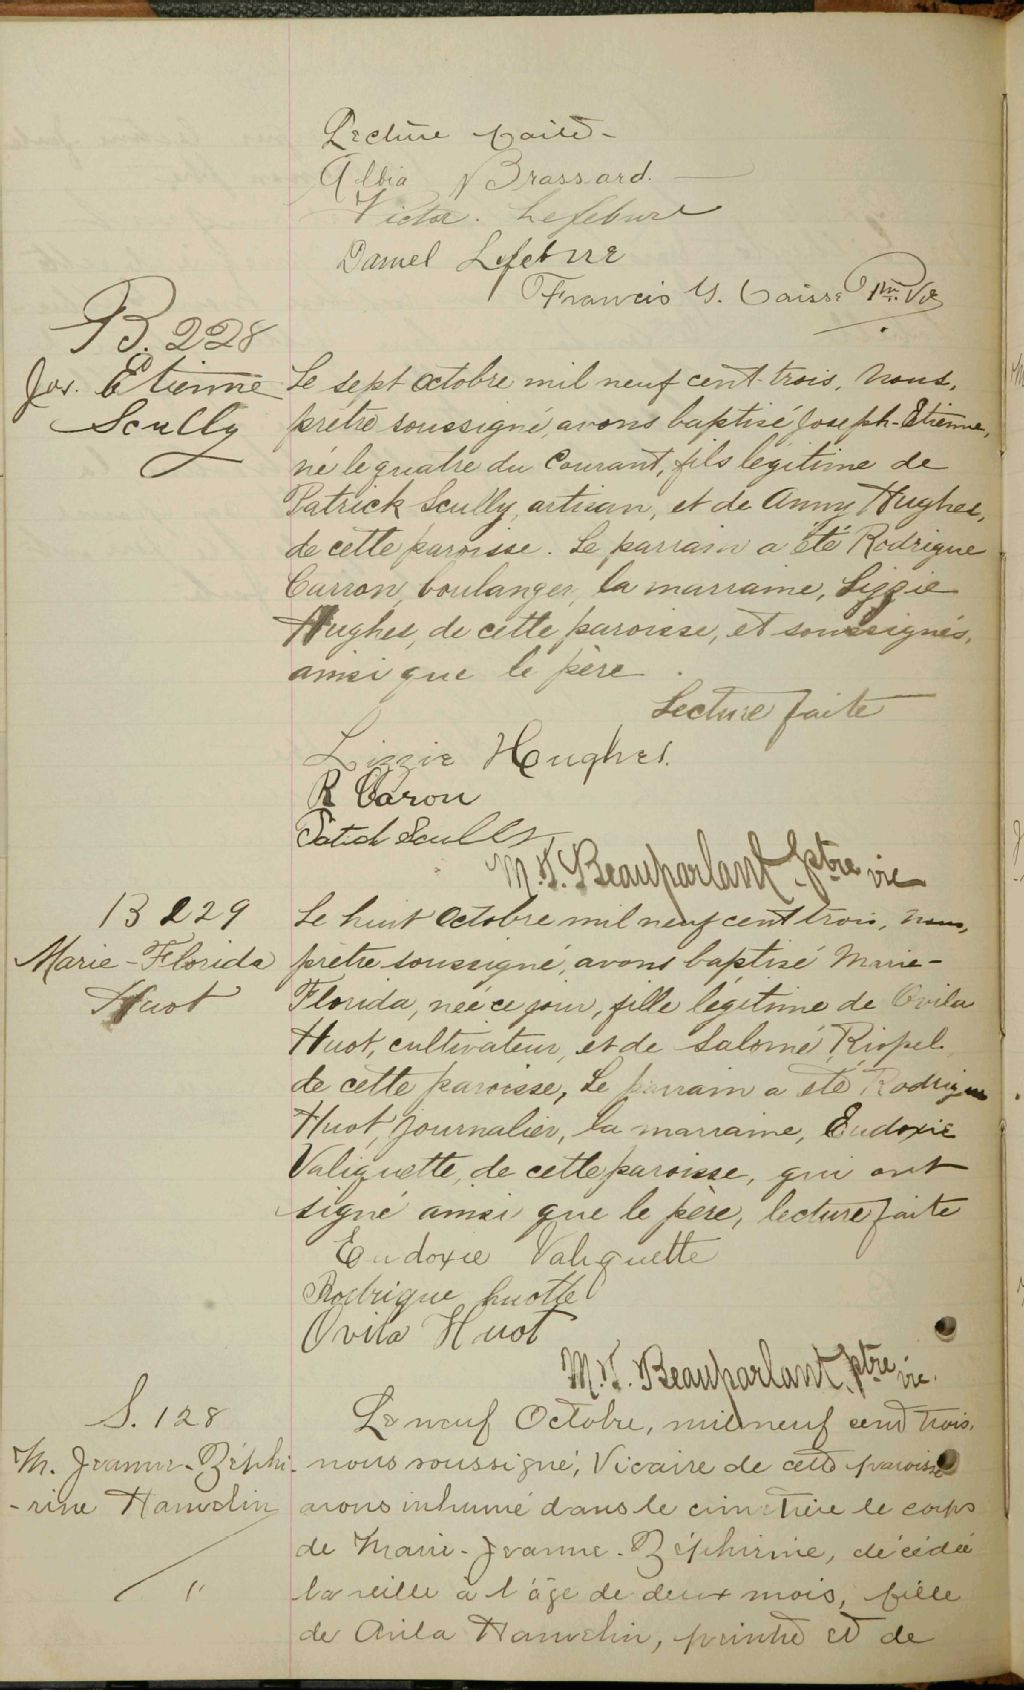 Lecture faite -
Albia Brassard.
Victor. Lefebvre
Daniel Lefebvre
Francis
B. 228
Jos. Etienne
Scully
Le sept Octobre mil neuf cent trois, nous,
prêtre soussigné, avons baptisé Joseph-Etienne,
né le quatre du Courant, fils légitime de
Patrick Scully, artisan, et de Anny Hughes,
de cette paroisse. Le parrain a été Rodrigue
Carron, boulanger, la marraine, Lizzie
Hughes, de cette paroisse, et soussignés,
ainsi que le père.
Lecture faite
Lizzie Hughes.
R Caron
Scully
M. J. Beauparlant ptre vic
B 229
Marie-Florida
Huot
Le huit Octobre mil neuf cent trois, nous,
prêtre soussigné, avons baptisé Marie-
Florida, née ce jour, fille légitime de Ovila
Huot, cultivateur, et de Salomé Riopel
de cette paroisse, Le parrain a été Rodrigue
Huot, journalier, la marraine, Eudoxie
Valiquette, de cette paroisse, qui ont
signé ainsi que le père, lecture faite
Eudoxie Valiquette
Rodrigue huotte
Ovila Huot
M. J. Beauparlant, ptre vic.
S. 128
M. Jeanne-Zéphi-
-rine Hamelin
"
Le neuf Octobre, mil neuf cent trois,
nous soussigné, Vicaire de cette paroisse
avons inhumé dans le cimetière le corps
de Marie-Jeanne-Zéphirine, décédée
la veille à l'âge de deux mois, fille
de Avila Hamelin, peintre et de